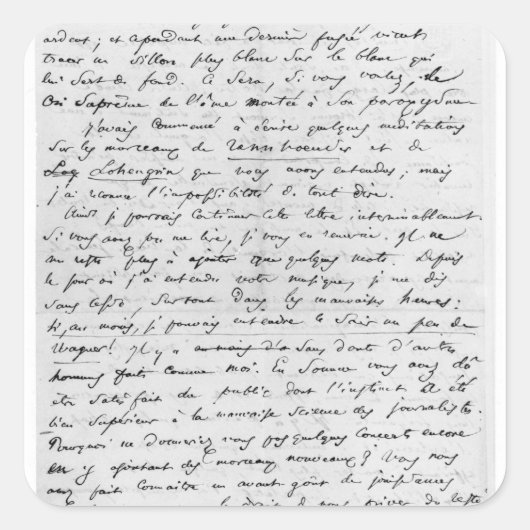 ardent; et cependant une dernière fusée vient
tracer un sillon plus blanc sur le blanc qui
lui sert de fond. Ce sera, si vous voulez, le
cri suprême de l'âme montée à son paroxysme
J'avais commencé à écrire quelques méditations
sur les morceaux de Tannhoeuser et de
Log Lohengrin que vous avons entendus; mais
j'ai reconnu l'impossibilité de tout dire.
Ainsi je pourrais continuer cette lettre interminablement.
Si vous avez pu me lire, je vous en remercie. Il ne
me reste plus à ajouter que quelques mots. Depuis
le jour où j'ai entendu votre musique, je me dis
sans cesse surtout dans les mauvaises heures:
Si, au moins, je pouvais entendre ce soir un peu de
Wagner! Il y a sans doute d'autres
hommes faits comme moi. En somme vous avez dû
être satisfait du public dont l'instinct a été
bien supérieur à la mauvaise science des journalistes.
Pourquoi ne donneriez vous pas quelques concerts encore
en y ajoutant des morceaux nouveaux? Vous nous
avez fait connaître un avant-goût de jouissances
droit de nous priver du reste